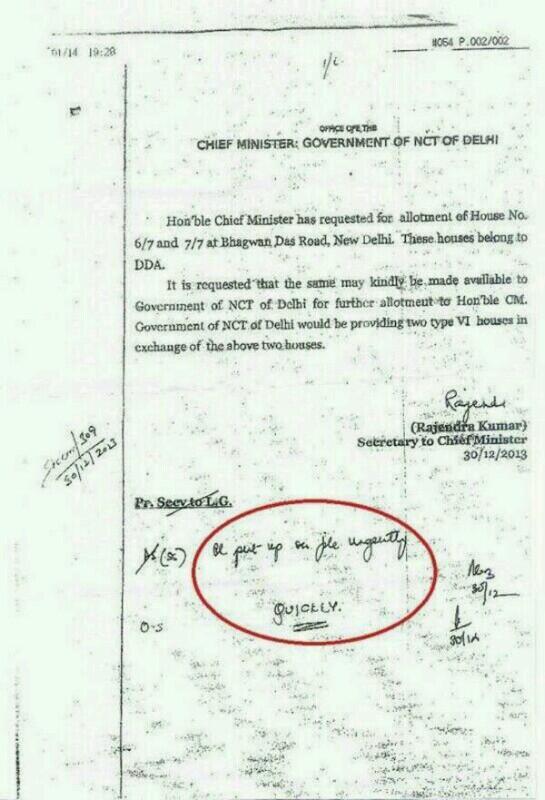 '01/14 19:28
#054 P.002/002
OFFICE OF THE
CHIEF MINISTER: GOVERNMENT OF NCT OF DELHI
Hon'ble Chief Minister has requested for allotment of House No.
6/7 and 7/7 at Bhagwan Das Road, New Delhi. These houses belong to
DDA.
It is requested that the same may kindly be made available to
Government of NCT of Delhi for further allotment to Hon'ble CM.
Government of NCT of Delhi would be providing two type VI houses in
exchange of the above two houses.
Rajendra
(Rajendra Kumar)
Secretary to Chief Minister
30/12/2013
309
30/12/2013
Pr. Secy to L.G.
Pl put up on file urgently
QUICKLY.
30/12
30/12
O-S